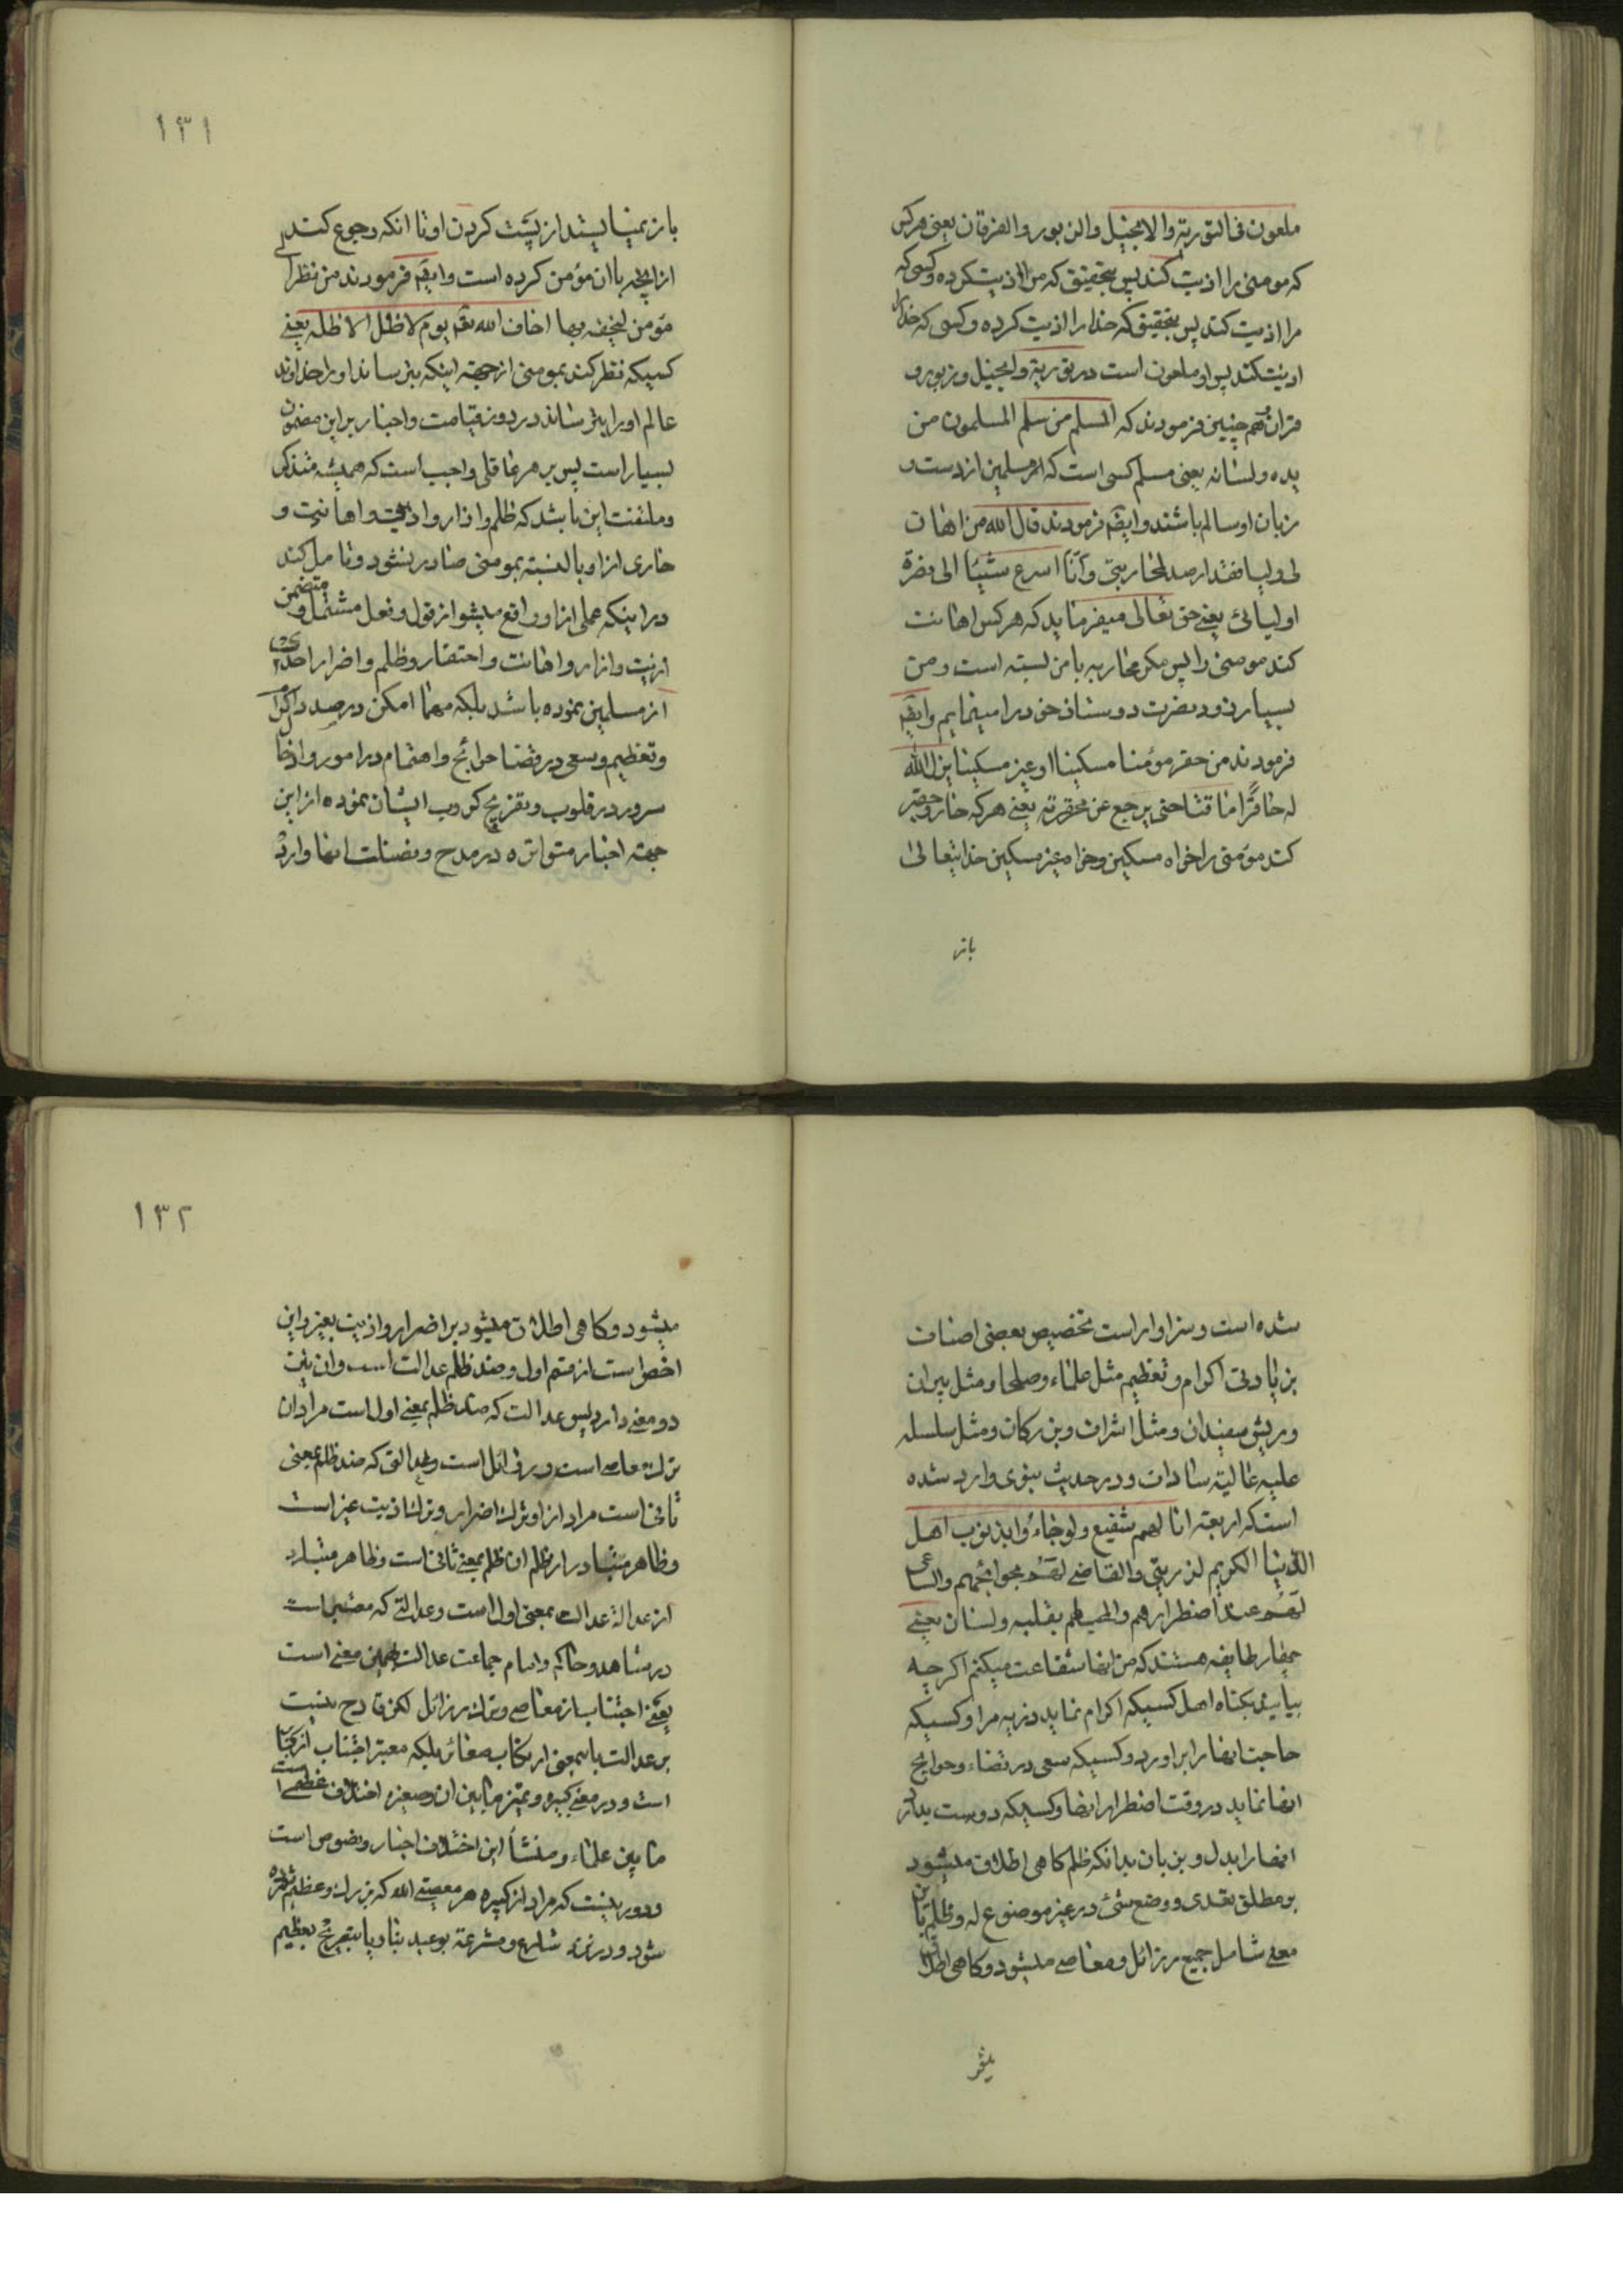 ملعون فی التوریة والانجیل والزبور والفرقان یعنی هرکس
که مومنی را اذیت کند پس بتحقیق که مرا اذیت کرده وکسی که
مرا اذیت کند پس بتحقیق که خدا را اذیت کرده وکسی که خدا را
اذیت کند پس او ملعون است در توریة وانجیل وزبور و
قران وهم چنین فرمودند که المسلم من سلم المسلمون من
یده ولسانه یعنی مسلم کسی است که مسلمین از دست و
زبان او سالم باشند وایضا فرمودند قال الله من اهان
لی ولیا فقد ارصد لمحاربتی وانا اسرع شیئا الی نصرة
اولیائی یعنی حق تعالی میفرماید که هرکس اهانت
کند مومنی را پس کمر محاربه با من بسته است ومن
بسیار زود نصرت دوستان خود را مینمایم وایضا
فرمودند من حقر مؤمنا مسکینا او غیر مسکین لم یزل الله
له حاقرا ماقتا حتی یرجع عن محقرته یعنی هرکه خار وحقیر
کند مؤمنی را خواه مسکین وخواه غیر مسکین خدایتعالی
باز
۱۳۱
باز نمیایستد از پست کردن او تا انکه رجوع کند
از انچه باان مؤمن کرده است وایضا فرمودند من نظر الی
مؤمن لیخیفه بها اخاف الله تعالی یوم لا ظل الا ظله یعنی
کسیکه نظر کند بمومنی از جهته اینکه بترساند او را خداوند
عالم او را بترساند در روز قیامت واخبار بر این مضمون
بسیار است پس بر هر عاقلی واجب است که همیشه متذکر
وملتفت این باشد که ظلم وازار واذیت واهانت و
خاری از او بالنسبته بمومنی صادر نشود وتامل کند
در اینکه عملی از او واقع میشود از قول وفعل مشتمل ومتضمن
اذیت وازار واهانت واحتقار وظلم واضرار احدی
از مسلمین نموده باشد بلکه مهما امکن در صدد اکرام
وتعظیم وسعی در قضا حوائج واهتمام در امور وادخال
سرور در قلوب وتفریح کروب ایشان نموده از این
جهته اخبار متواتره در مدح وفضیلت انها وارد
شده است وسزاوار است تخصیص بعضی اصناف
بزیادتی اکرام وتعظیم مثل علماء وصلحا ومثل پیران
وریش سفیدان ومثل اشراف وبزرکان ومثل سلسله
علیه عالیه سادات ودر حدیث نبوی وارد شده
است که اربعة انا لهم شفیع ولو جاءوا بذنوب اهل
الدنیا المکرم لذریتی والقاضی لهم حوائجهم والساعی
لهم عند اضطرارهم والمحب لهم بقلبه ولسان یعنی
چهار طایفه هستند که من انها شفاعت میکنم اکرچه
بیایند بکناه اهل کسیکه اکرام نماید ذریه مرا وکسیکه
حاجت انها را براورد وکسیکه سعی در قضاء وحوایج
انها نماید در وقت اضطرار انها وکسیکه دوست بدارد
انها را بدل وزبان بدانکه ظلم کاهی اطلاق میشود
بر مطلق تعدی ووضع شئ در غیر موضوع له وظلم باین
معنی شامل جمیع رزائل ومعاصی میشود وکاهی اطلاق
میشود
۱۳۲
میشود وکاهی اطلاق میشود بر اضرار واذیت بغیر واین
اخص است از قسم اول وضد ظلم عدالت است وان نیز
دو معنی دارد پس عدالت که ضد ظلم بمعنی اول است مراد ان
ترک معاصی است ورزائل است وعدالتی که ضد ظلم بمعنی
ثانی است مراد از او ترک اضرار وترک اذیت غیر است
وظاهر متبادر از ظلم ان ظلم بمعنی ثانی است وظاهر متبادر
از عدالة عدالت بمعنی اول است وعدالتی که معتبر است
در شاهد وحاکم وامام جماعت عدالت همین معنی است
یعنی اجتناب از معاصی وترک رزائل لکن قادح نیست
بر عدالت باینمعنی ارتکاب صغائر بلکه معتبر اجتناب از کبائر
است ودر معنی کبیره وتمیز مابین ان وصغیره اختلاف عظیمی است
مابین علماء ومنشأ این اختلاف اخبار ونصوص است
ودور نیست که مراد از کبیره هر معصیتی که بزرک وعظیم شمرده
شود ودر نزد شارع ومتشرعة بوعید بنار یا بتصریح بعظیم